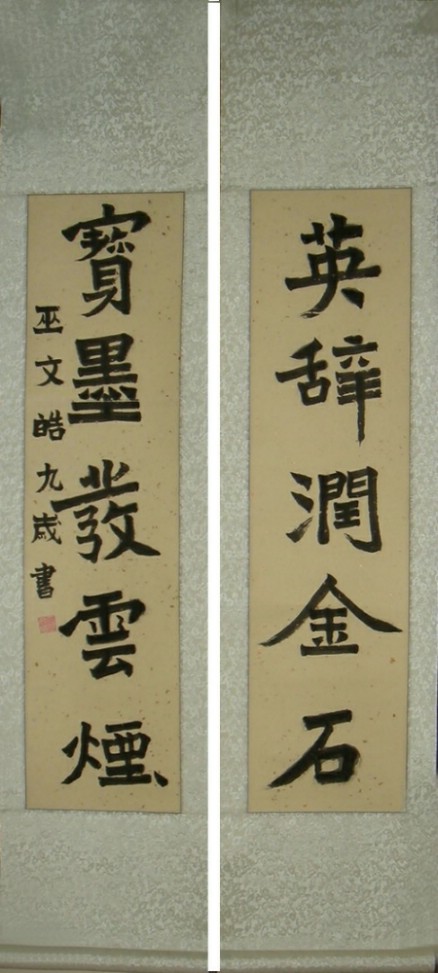 英辞潤金石
寶墨發雲煙
巫文皓九歲書